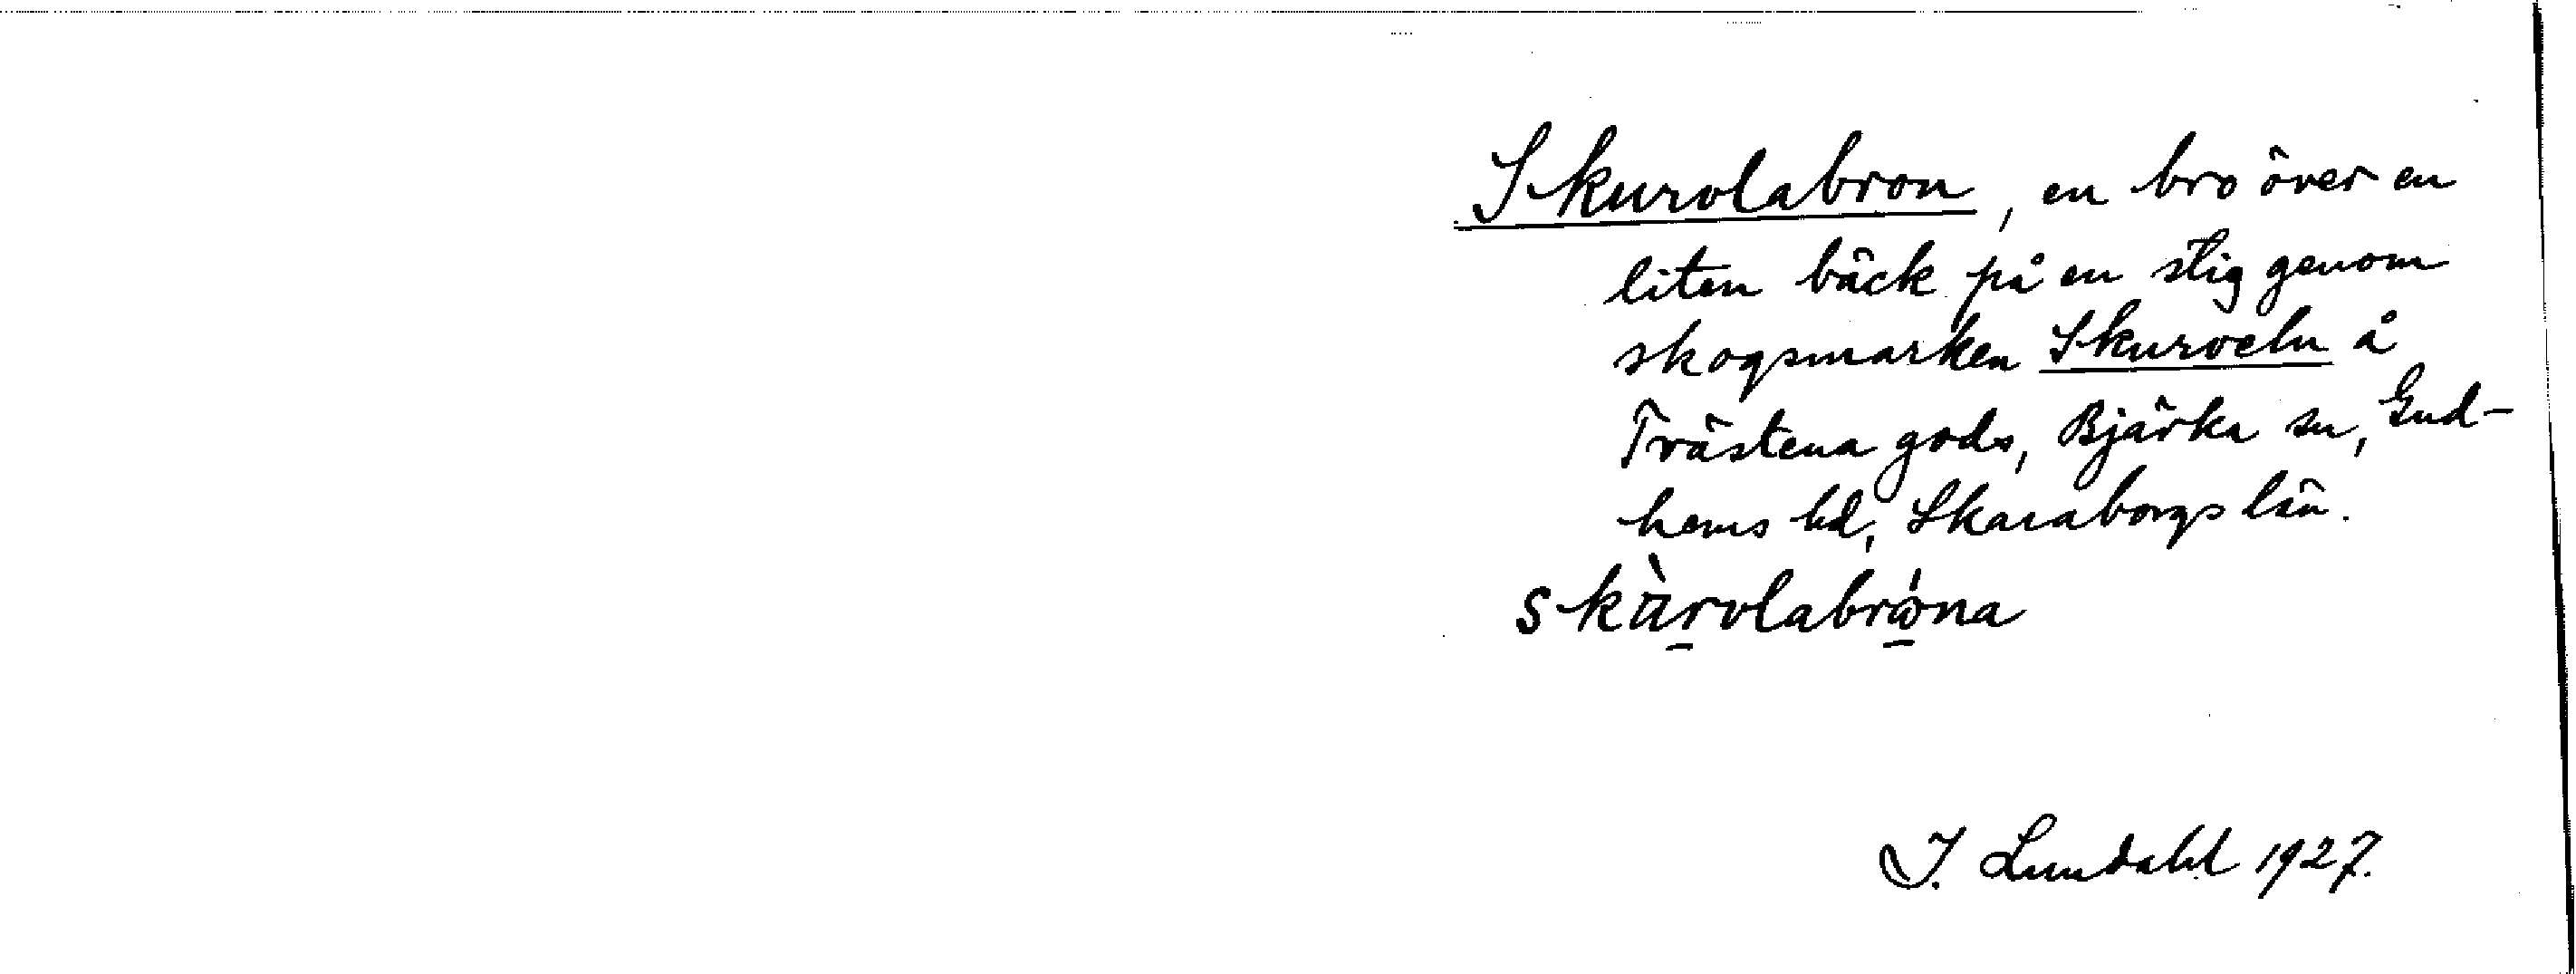 Skurvlabron, en bro över en
liten bäck på en stig genom
skogsmarken Skurveln å
Trästena gods, Bjärka sn, Gud-
hems hd, Skaraborgs län.
skàrvlabrǿna
I. Lundahl 1927.